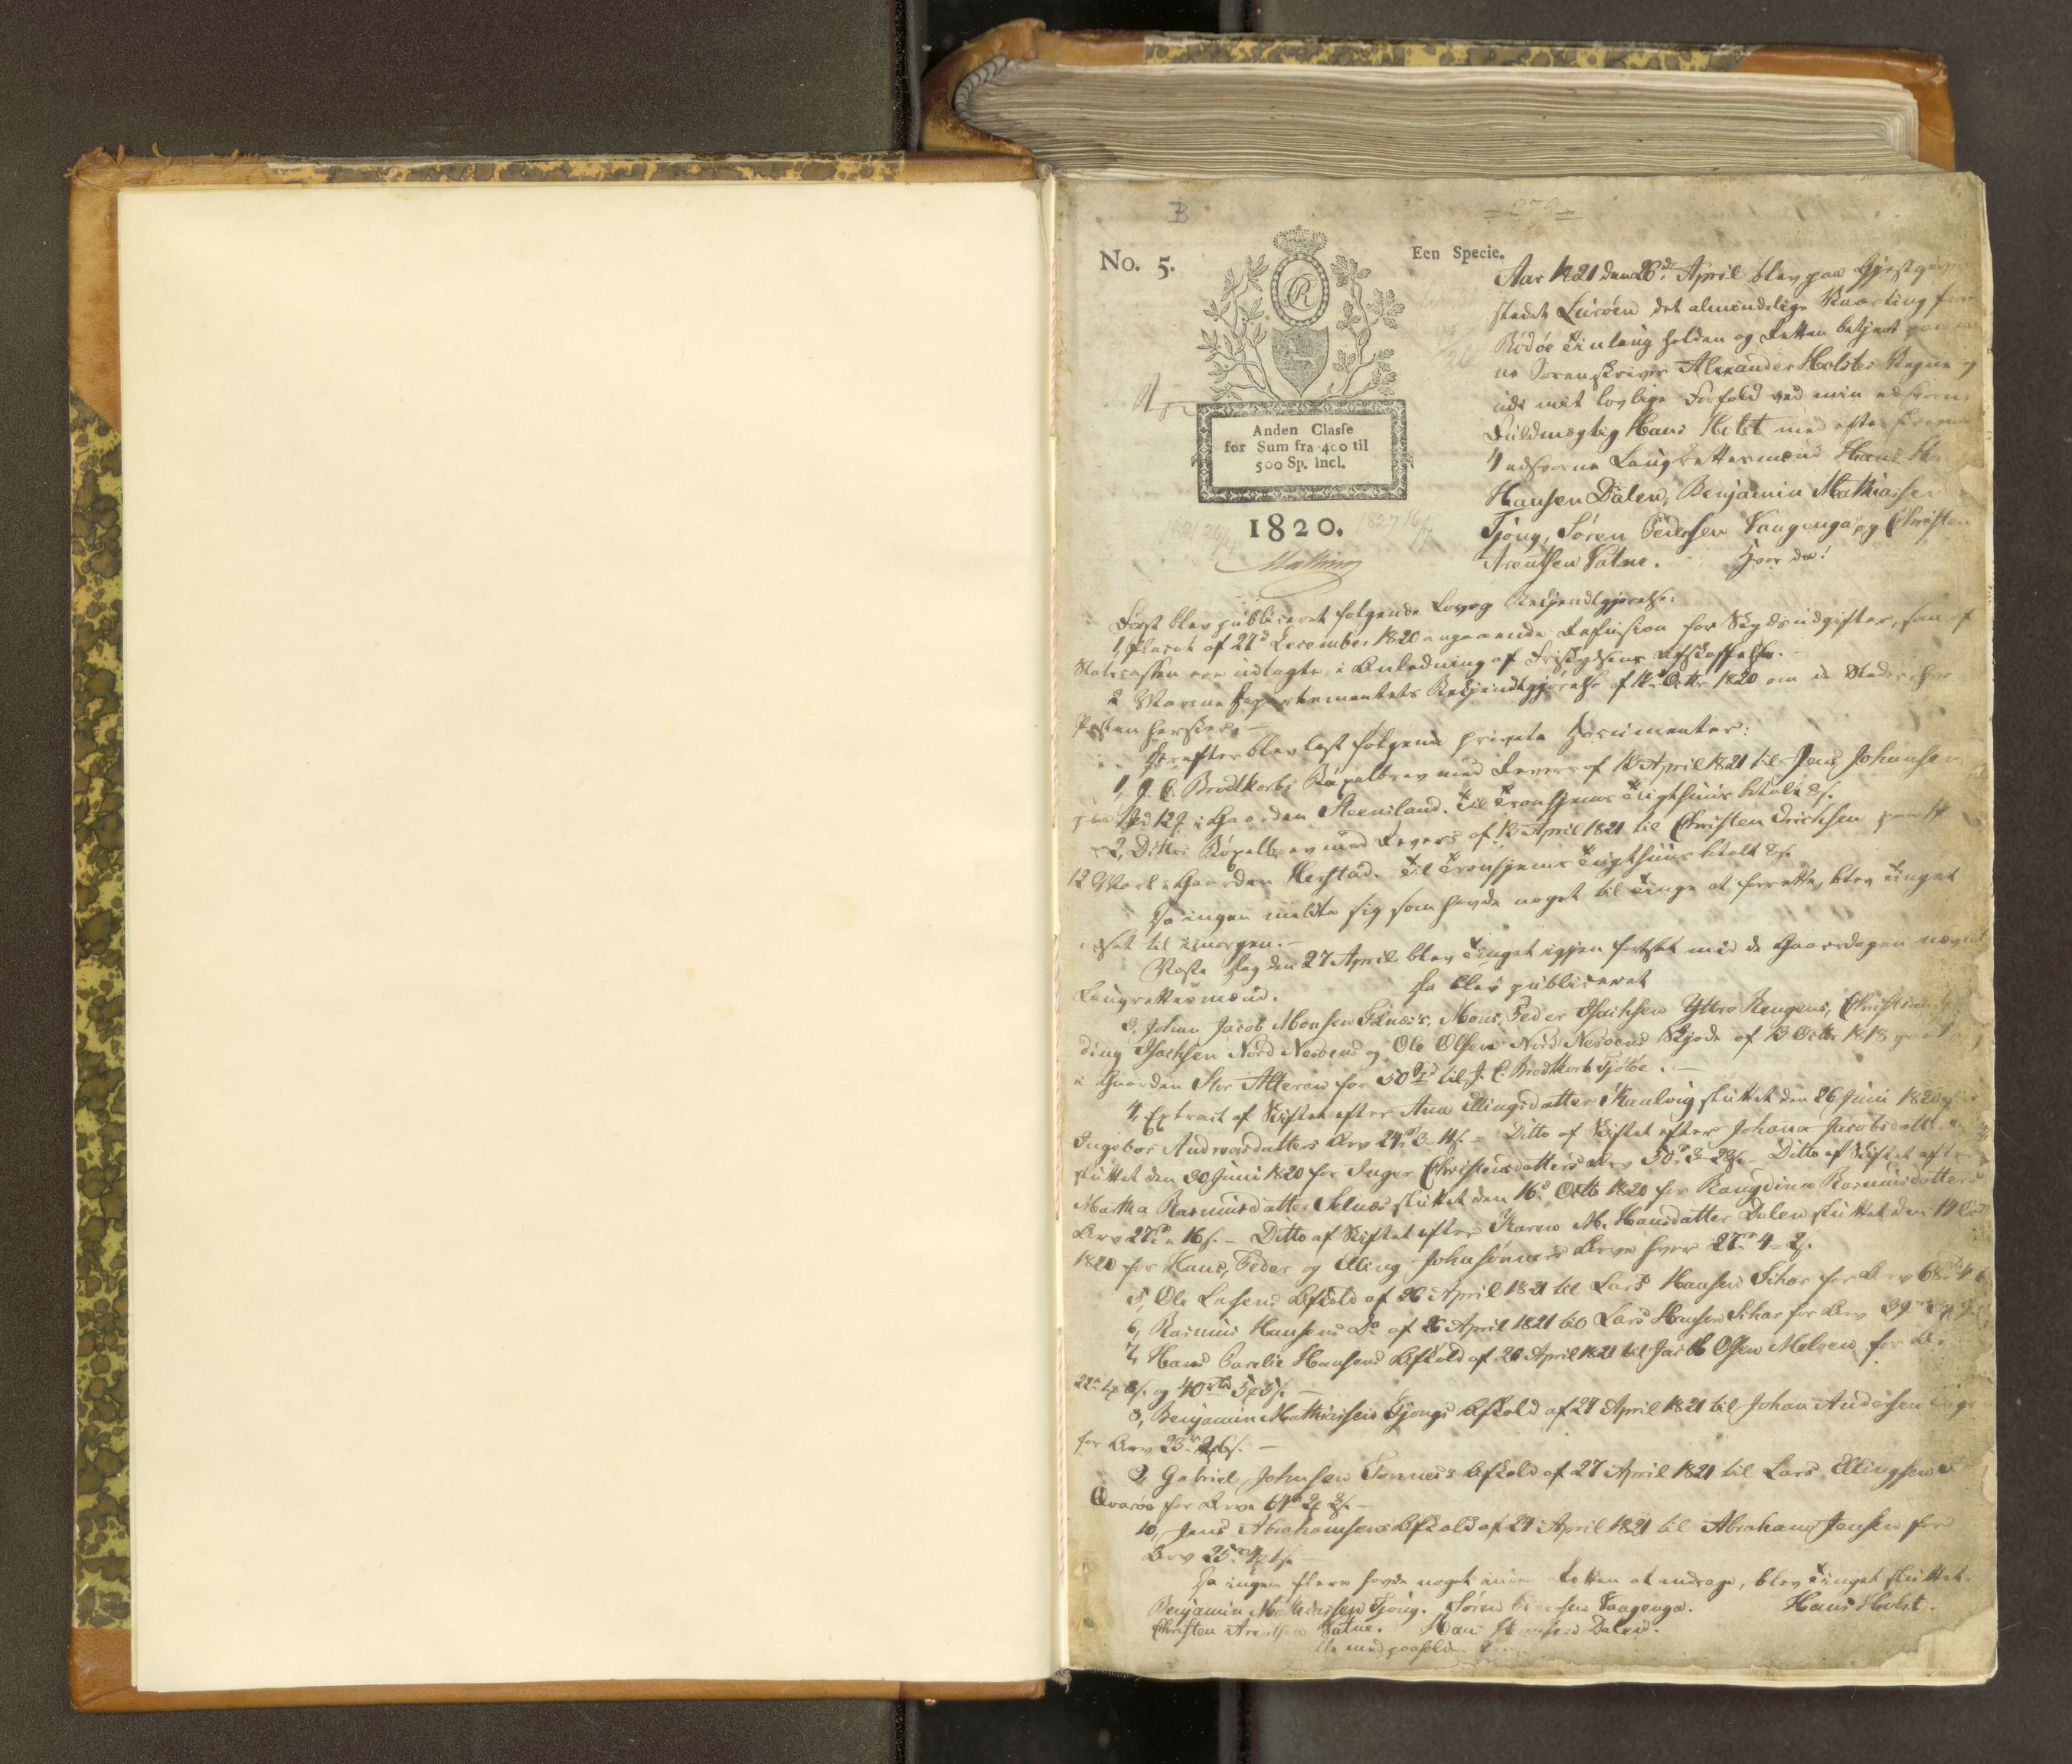 B
=279=
No. 5.
Een Specie.
R
Anden Classe
for Sum fra 400 til
500 Sp. incl.
1820.
Aar 1821 den 26de April blev paa Gjestgiver
stedet Luröen det almindelige Vaarting for
Rödöe Tinglaug holden og Retten betjent
Sorenskriver Alexander Holsts Vegne og
udi mit lovlige Forfald ved min edsvorne
Fuldmægtig Hans Holst med efterskrevne
4 edsvorne Laugrettesmænd Hans
Hansen Dalen, Benjamin Mathiassen
Tjong, Sören Pedersen Vaagenga, og Christen
Arentsen Vatne. Hvor da!
Först blev publiceret følgende Lov og Bekjendtgjørelse:
1, Placat af 27d December 1820 angaaende Refusion for Skydsudgifter, som af
Statscassen ere udlagte i Anledning af Friskydsens Afskaffelse.
2 Marine Departementets Bekjendtgjörelse af Octbr 1820 om de Steder hvor
Pesten hersker. —
Derefter blev læst følgende private Documenter:
1, J. C. Brodtkorbs Bøxelbrev med Revers af 13 April 1821 til Jens Johansen
paa 1 Pd 12 i Gaarden Steensland. Til Tronhjems Tugthuus betalt
2, Dittos Bøxelbrev med Revers af 13 April 1821 til Christen Erichsen paa
12 Mark i Gaarden Kerstad. Til Tronhjems Tugthuus betalt
Da ingen meldte sig som havde noget til Tinge at forrette, blev Tinget
udsat til imorgen. —
Næste Dag den 27 April blev Tinget igjen fortsat med de Gaarsdagen nævnte
Laugrettesmænd. Da blev publiceret
3, Johan Jacob Monsen Selnæs's, Mons Peder Isachsen Yttre Rangens,
ding Isachsen Nord Nesöens og Ole Olsen Nord Nesöens Skjøde af 13 Octbr 1818
i Gaarden Stor Alteren for 50 til J. C. Brodtkorb Tjötöe. —
4, Extract af Skiftet efter Ane Ellingsdatter sluttet den 26 Juni 1820
Ingebor Andreasdatters Arv 24 3 — Ditto af Skiftet efter Johana Jacobsdatter
sluttet den 30 Juni 1820 for Inger Christensdatters Arv 50 — Ditto af Skiftet efter
Martha Rasmusdatter Selnæs sluttet den 16d Octb 1820 for Rangdine Rasmusdatters
Arv 27 16 s. — Ditto af Skiftet efter Karen M. Hansdatter Dalen sluttet den
1820 for Hans, Peder og Elling Johnsønners Arve hver 27 4
5, Ole Larsens Afkald af 26 April 1821 til Lars Hansen for Arv 68
6, Rasmus Hansens Do af 26 April 1821 til Lars Hansen for Arv 39
7, Hans Parelie Hansens Afkald af 26 April 1821 til Jacob Olsen Meløen for
22 og 40
8, Benjamin Mathiassen Tjongs Afkald af 27 April 1821 til Johan Andersen
for Arv 23
9, Gabriel Johnsen Tonnes's Afkald af 27 April 1821 til Lars Ellingsen
Qvaröe for Arve 64
10, Jens Abrahamsens Afkald af 27 April 1821 til Abraham Jensen for
Arv 25
Da ingen flere havde noget inden Retten at andrage, blev Tinget sluttet.
Benjamin Mathiassen Tjong. Sören Pedersen Vaagenga. Hans Holst.
Christen Arentsen Vatne. Hans Hansen Dalen.